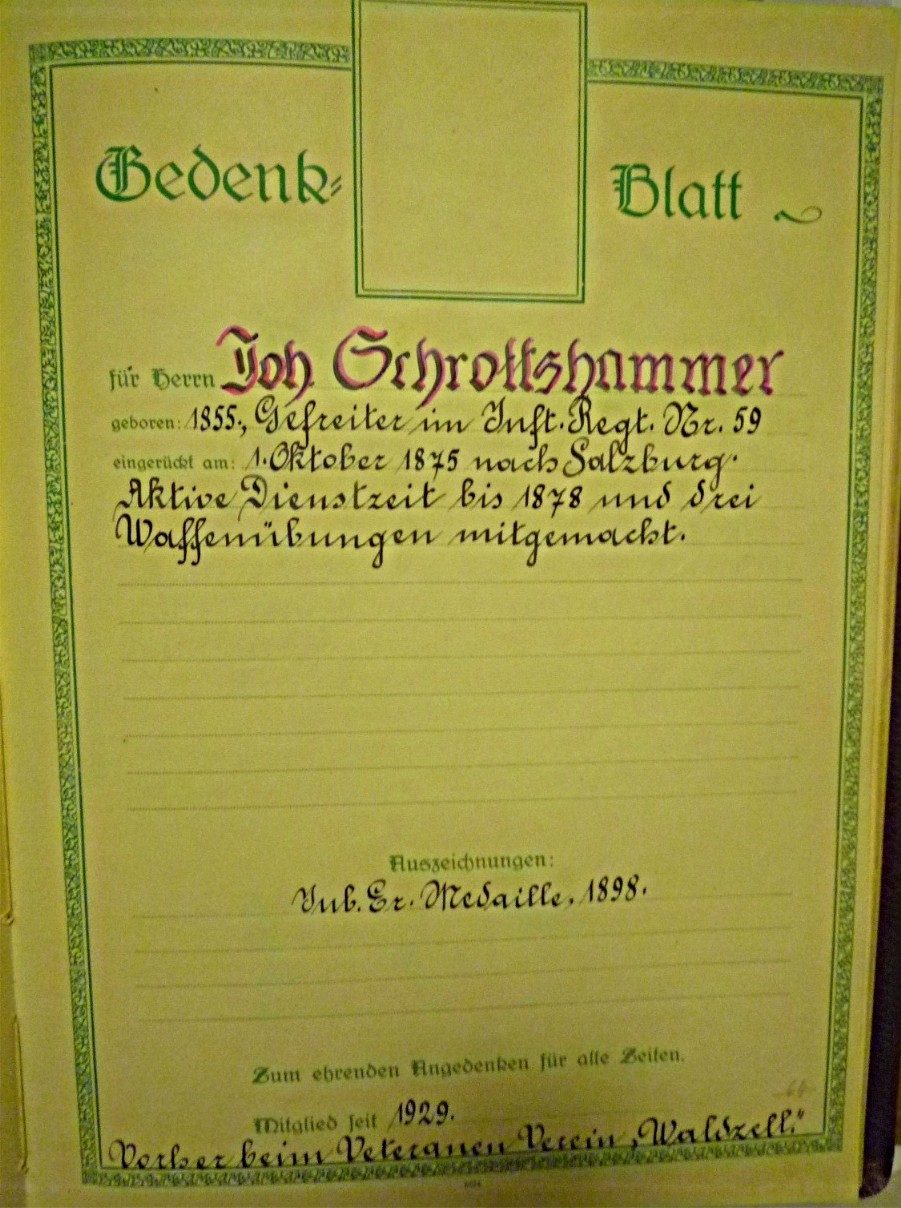 Gedenk= Blatt
für Herrn Joh Schrottshammer
geboren: 1855., Gefreiter im Inft. Regt. Nr. 59
eingerückt am: 1. Oktober 1875 nach Salzburg.
Aktive Dienstzeit bis 1878 und drei
Waffenübungen mitgemacht.
Auszeichnungen:
Jub. Er. Medaille, 1898.
Zum ehrenden Angedenken für alle Zeiten.
Mitglied seit 1929.
Vorher beim Veteranen Verein „Waldzell."